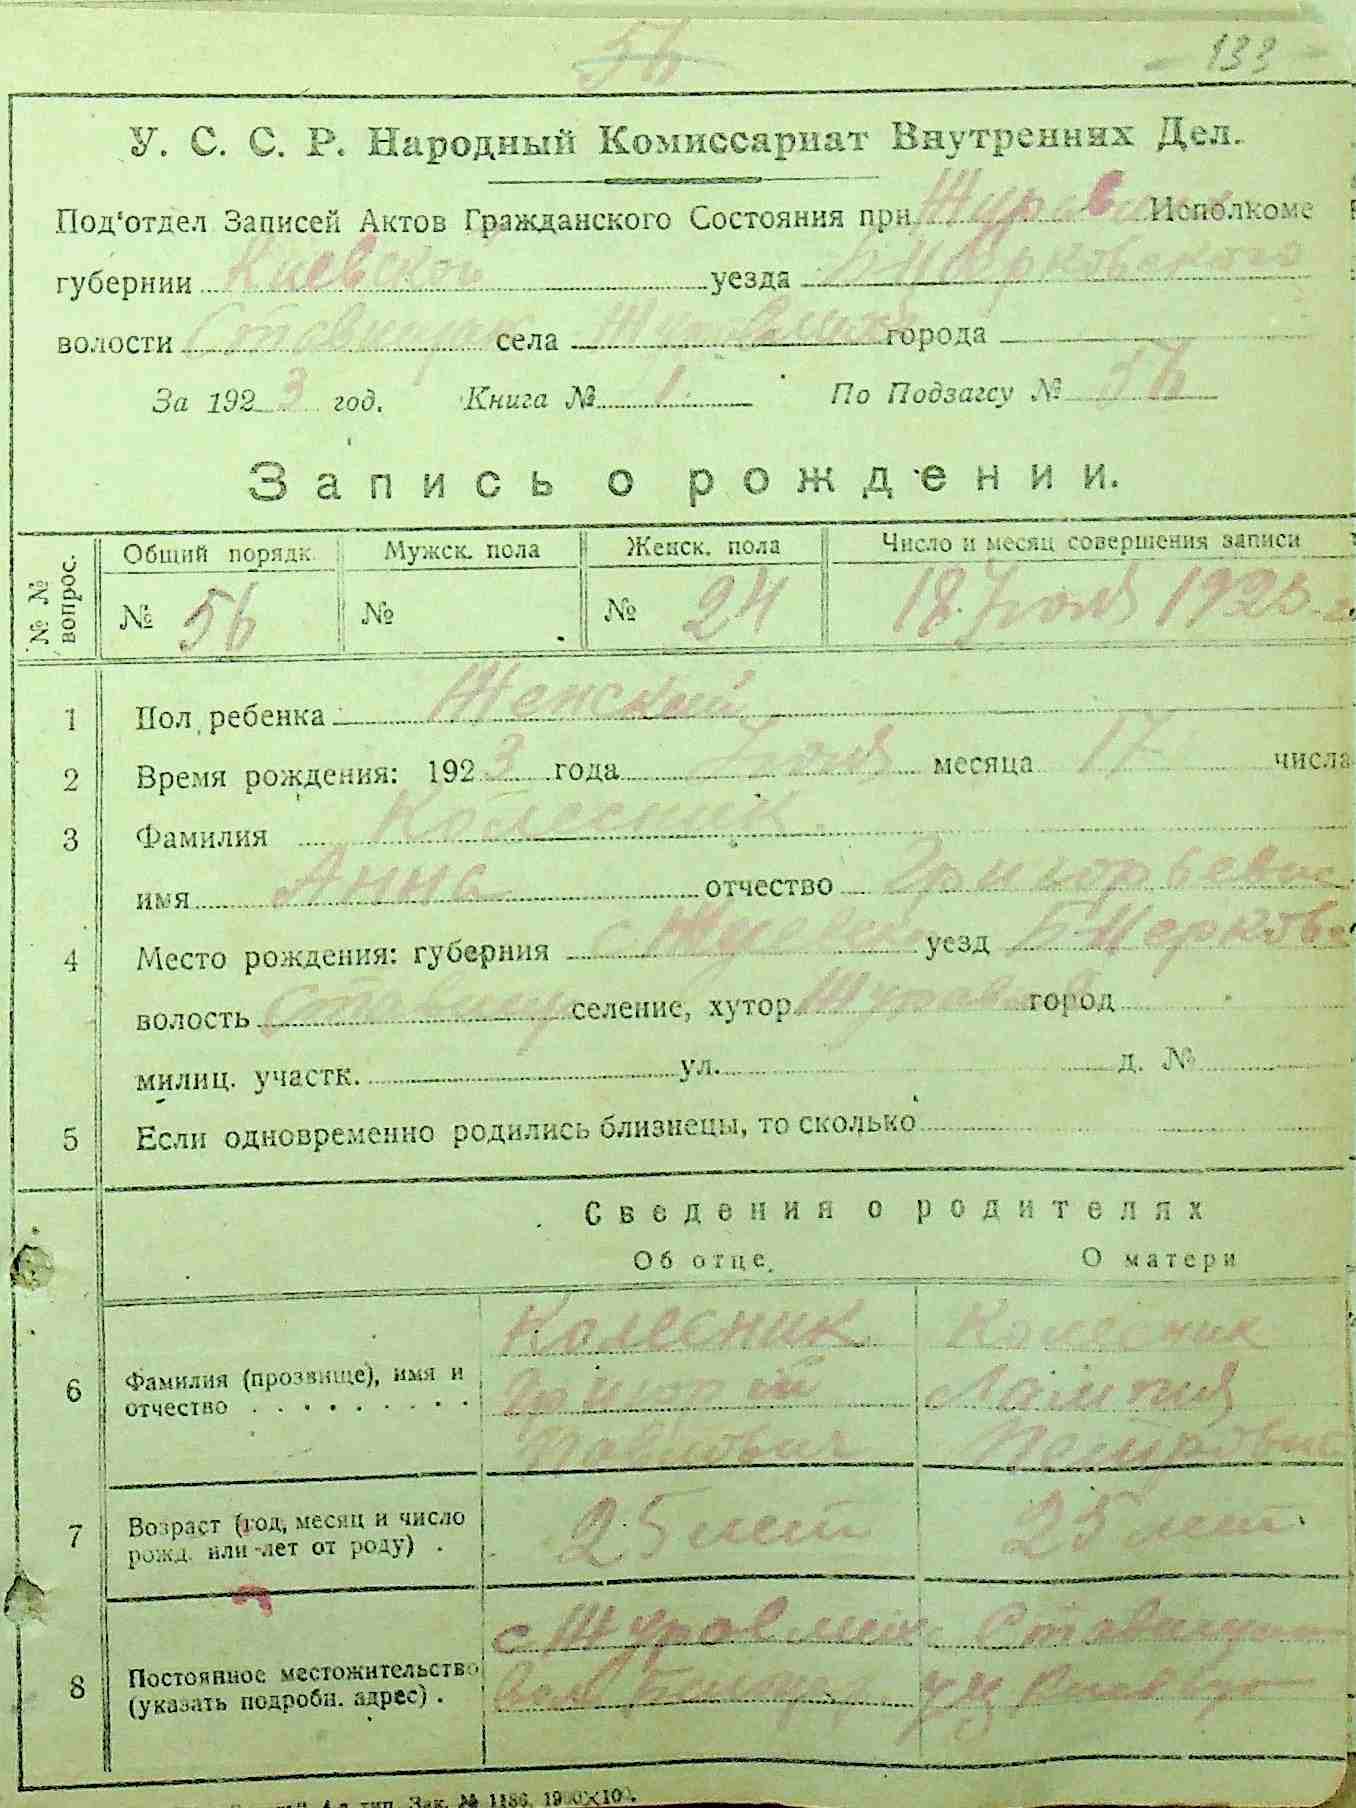 56
- 133 -
У. С. С. Р. Народный Комиссариат Внутренних Дел.
Под‘отдел Записей Актов Гражданского Состояния при Журав Исполкоме
губернии Киевской уезда БЦерковского
волости Ставищан села города
За 1923 год. Книга № 1. По Подзагсу № 56
Запись о рождении.
№ № вопрос. Общий порядк. Мужск. пола Женск. пола Число и месяц совершения записи
№ 56 № № 24 18 Июля 1923 г.
1 Пол ребенка Женский
2 Время рождения: 1923 года Июля месяца 17 числа
3 Фамилия Колесник
имя Анна отчество Григорьевна
4 Место рождения: губерния уезд БЦерковс
волость Ставищ селение, хутор город
милиц. участк. ул. д. №
5 Если одновременно родились близнецы, то сколько
Сведения о родителях
Об отце. О матери
Колесник Колесник
6 Фамилия (прозвище), имя и отчество Григорий Лампия
Павлович Петровна
7 Возраст (год, месяц и число рожд. или лет от роду) . 25 лет 25 лет.
с Журавлиха Ставищан
8 Постоянное местожительство (указать подробн. адрес) .
4-я тип. Зак. № 1186.